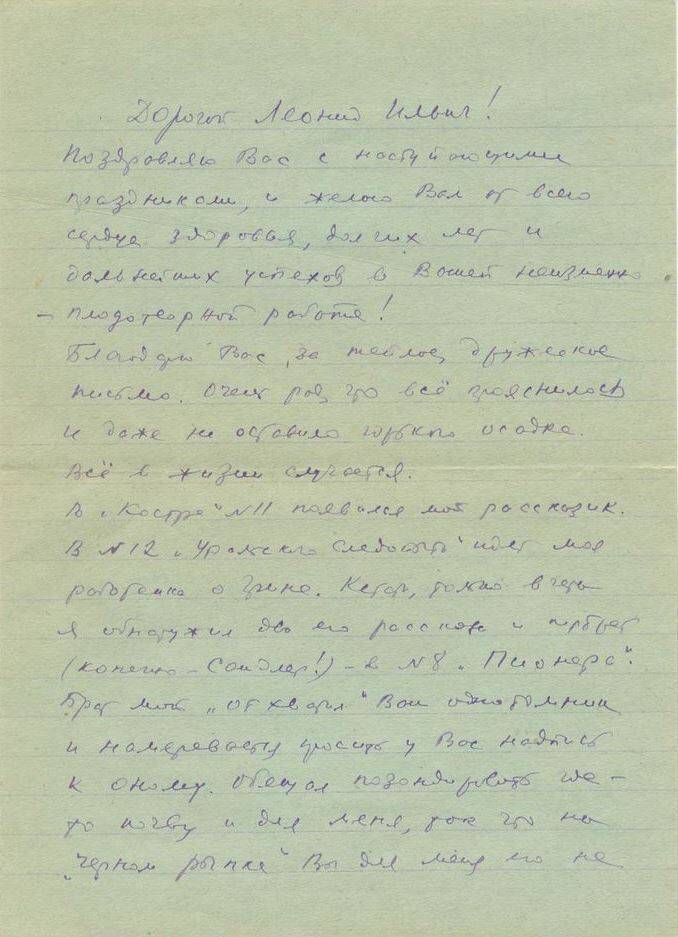 Дорогой Леонид Ильич!
Поздравляю Вас с наступающими
праздниками, и желаю Вам от всего
сердца здоровья, долгих лет и
дальнейших успехов в Вашей неизменно
– плодотворной работе!
Благодарю Вас за теплое, дружеское
письмо. Очень рад, что всё прояснилось
и даже не оставило горького осадка.
Всё в жизни случается.
В „Костре" №11 появился мой рассказик.
В №12 „Уральского Следопыта" идет моя
работенка о Грине. Кстати, только вчера
я обнаружил два его рассказа и портрет
(конечно – Сандлер!) – в №8 „Пионера".
Брат мой „отхватил" Ваш однотомник
и намеревается просить у Вас надпись
к оному. Обещал позондировать где–
то почву и для меня, так что на
„черном рынке" Вы для меня его не